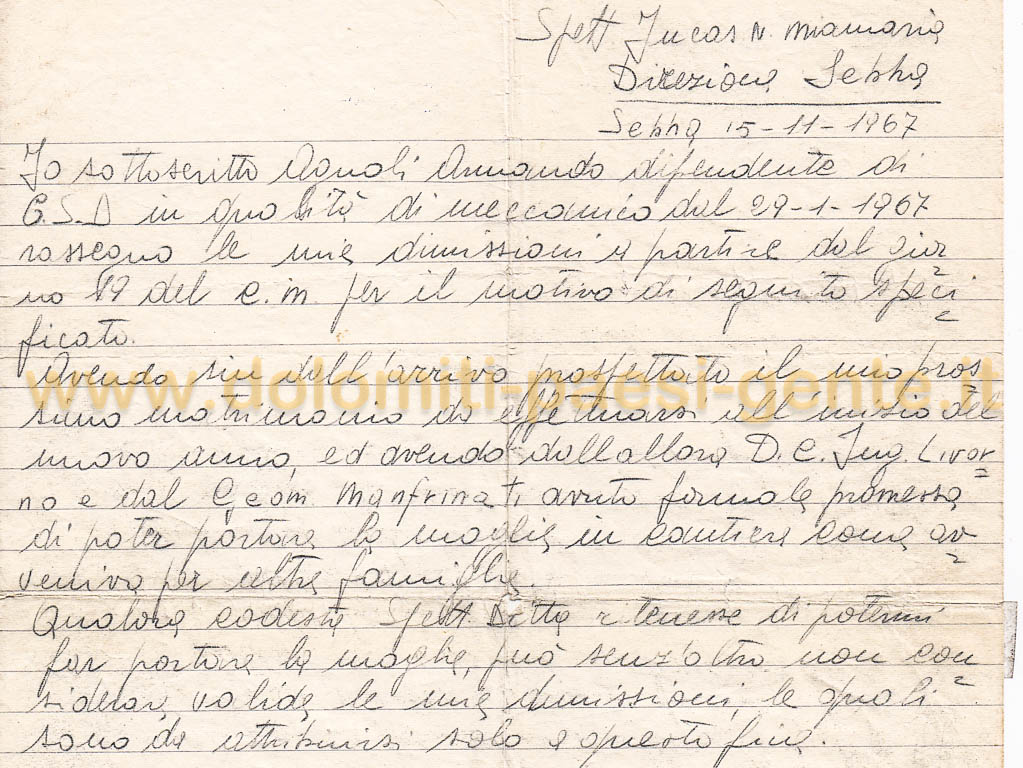 Spett Jucas N. Miamaria
Direzione Sebha
Sebha 15-11-1967
Io sottoscritto Agnoli Armando dipendente di
C.S.D in qualità di meccanico dal 29-1-1967
rassegno le mie dimissioni a partire dal gior
no 19 del c.m. per il motivo di seguito speci
ficato.
www.dolomiti-paesi-gente.it
Avendo sin dall'arrivo prospettato il mio pros
simo matrimonio da effettuarsi all'inizio del
nuovo anno, ed avendo dall'allora D.C. Ing. Livor
no e dal Geom. Manfrinati avuto formale promessa
di poter portare la moglie in cantiere come av
veniva per altre famiglie.
Qualora codesta Spett. Ditta ritenesse di potermi
far portare la moglie, può senz'altro non con
siderare valide le mie dimissioni, le quali
sono da attribuirsi solo a questo fine.